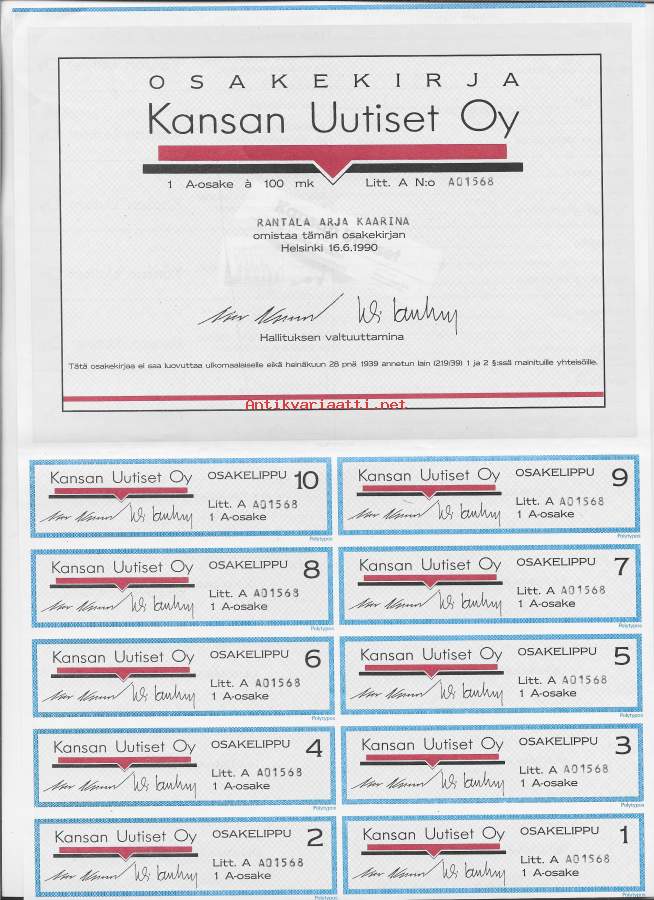 OSAKEKIRJA
Kansan Uutiset Oy
1 A-osake à 100 mk Litt. A N:o A01568
RANTALA ARJA KAARINA
omistaa tämän osakekirjan
Helsinki 16.6.1990
Hallituksen valtuuttamina
Tätä osakekirjaa ei saa luovuttaa ulkomaalaiselle eikä heinäkuun 28 pnä 1939 annetun lain (219/39) 1 ja 2 §:ssä mainituille yhteisöille.
Antikvariaatti.net
Kansan Uutiset Oy OSAKELIPPU 10
Litt. A A01568
1 A-osake
Polytypos
Kansan Uutiset Oy OSAKELIPPU 9
Litt. A A01568
1 A-osake
Polytypos
Kansan Uutiset Oy OSAKELIPPU 8
Litt. A A01568
1 A-osake
Polytypos
Kansan Uutiset Oy OSAKELIPPU 7
Litt. A A01568
1 A-osake
Polytypos
Kansan Uutiset Oy OSAKELIPPU 6
Litt. A A01568
1 A-osake
Polytypos
Kansan Uutiset Oy OSAKELIPPU 5
Litt. A A01568
1 A-osake
Polytypos
Kansan Uutiset Oy OSAKELIPPU 4
Litt. A A01568
1 A-osake
Polytypos
Kansan Uutiset Oy OSAKELIPPU 3
Litt. A A01568
1 A-osake
Polytypos
Kansan Uutiset Oy OSAKELIPPU 2
Litt. A A01568
1 A-osake
Polytypos
Kansan Uutiset Oy OSAKELIPPU 1
Litt. A A01568
1 A-osake
Polytypos